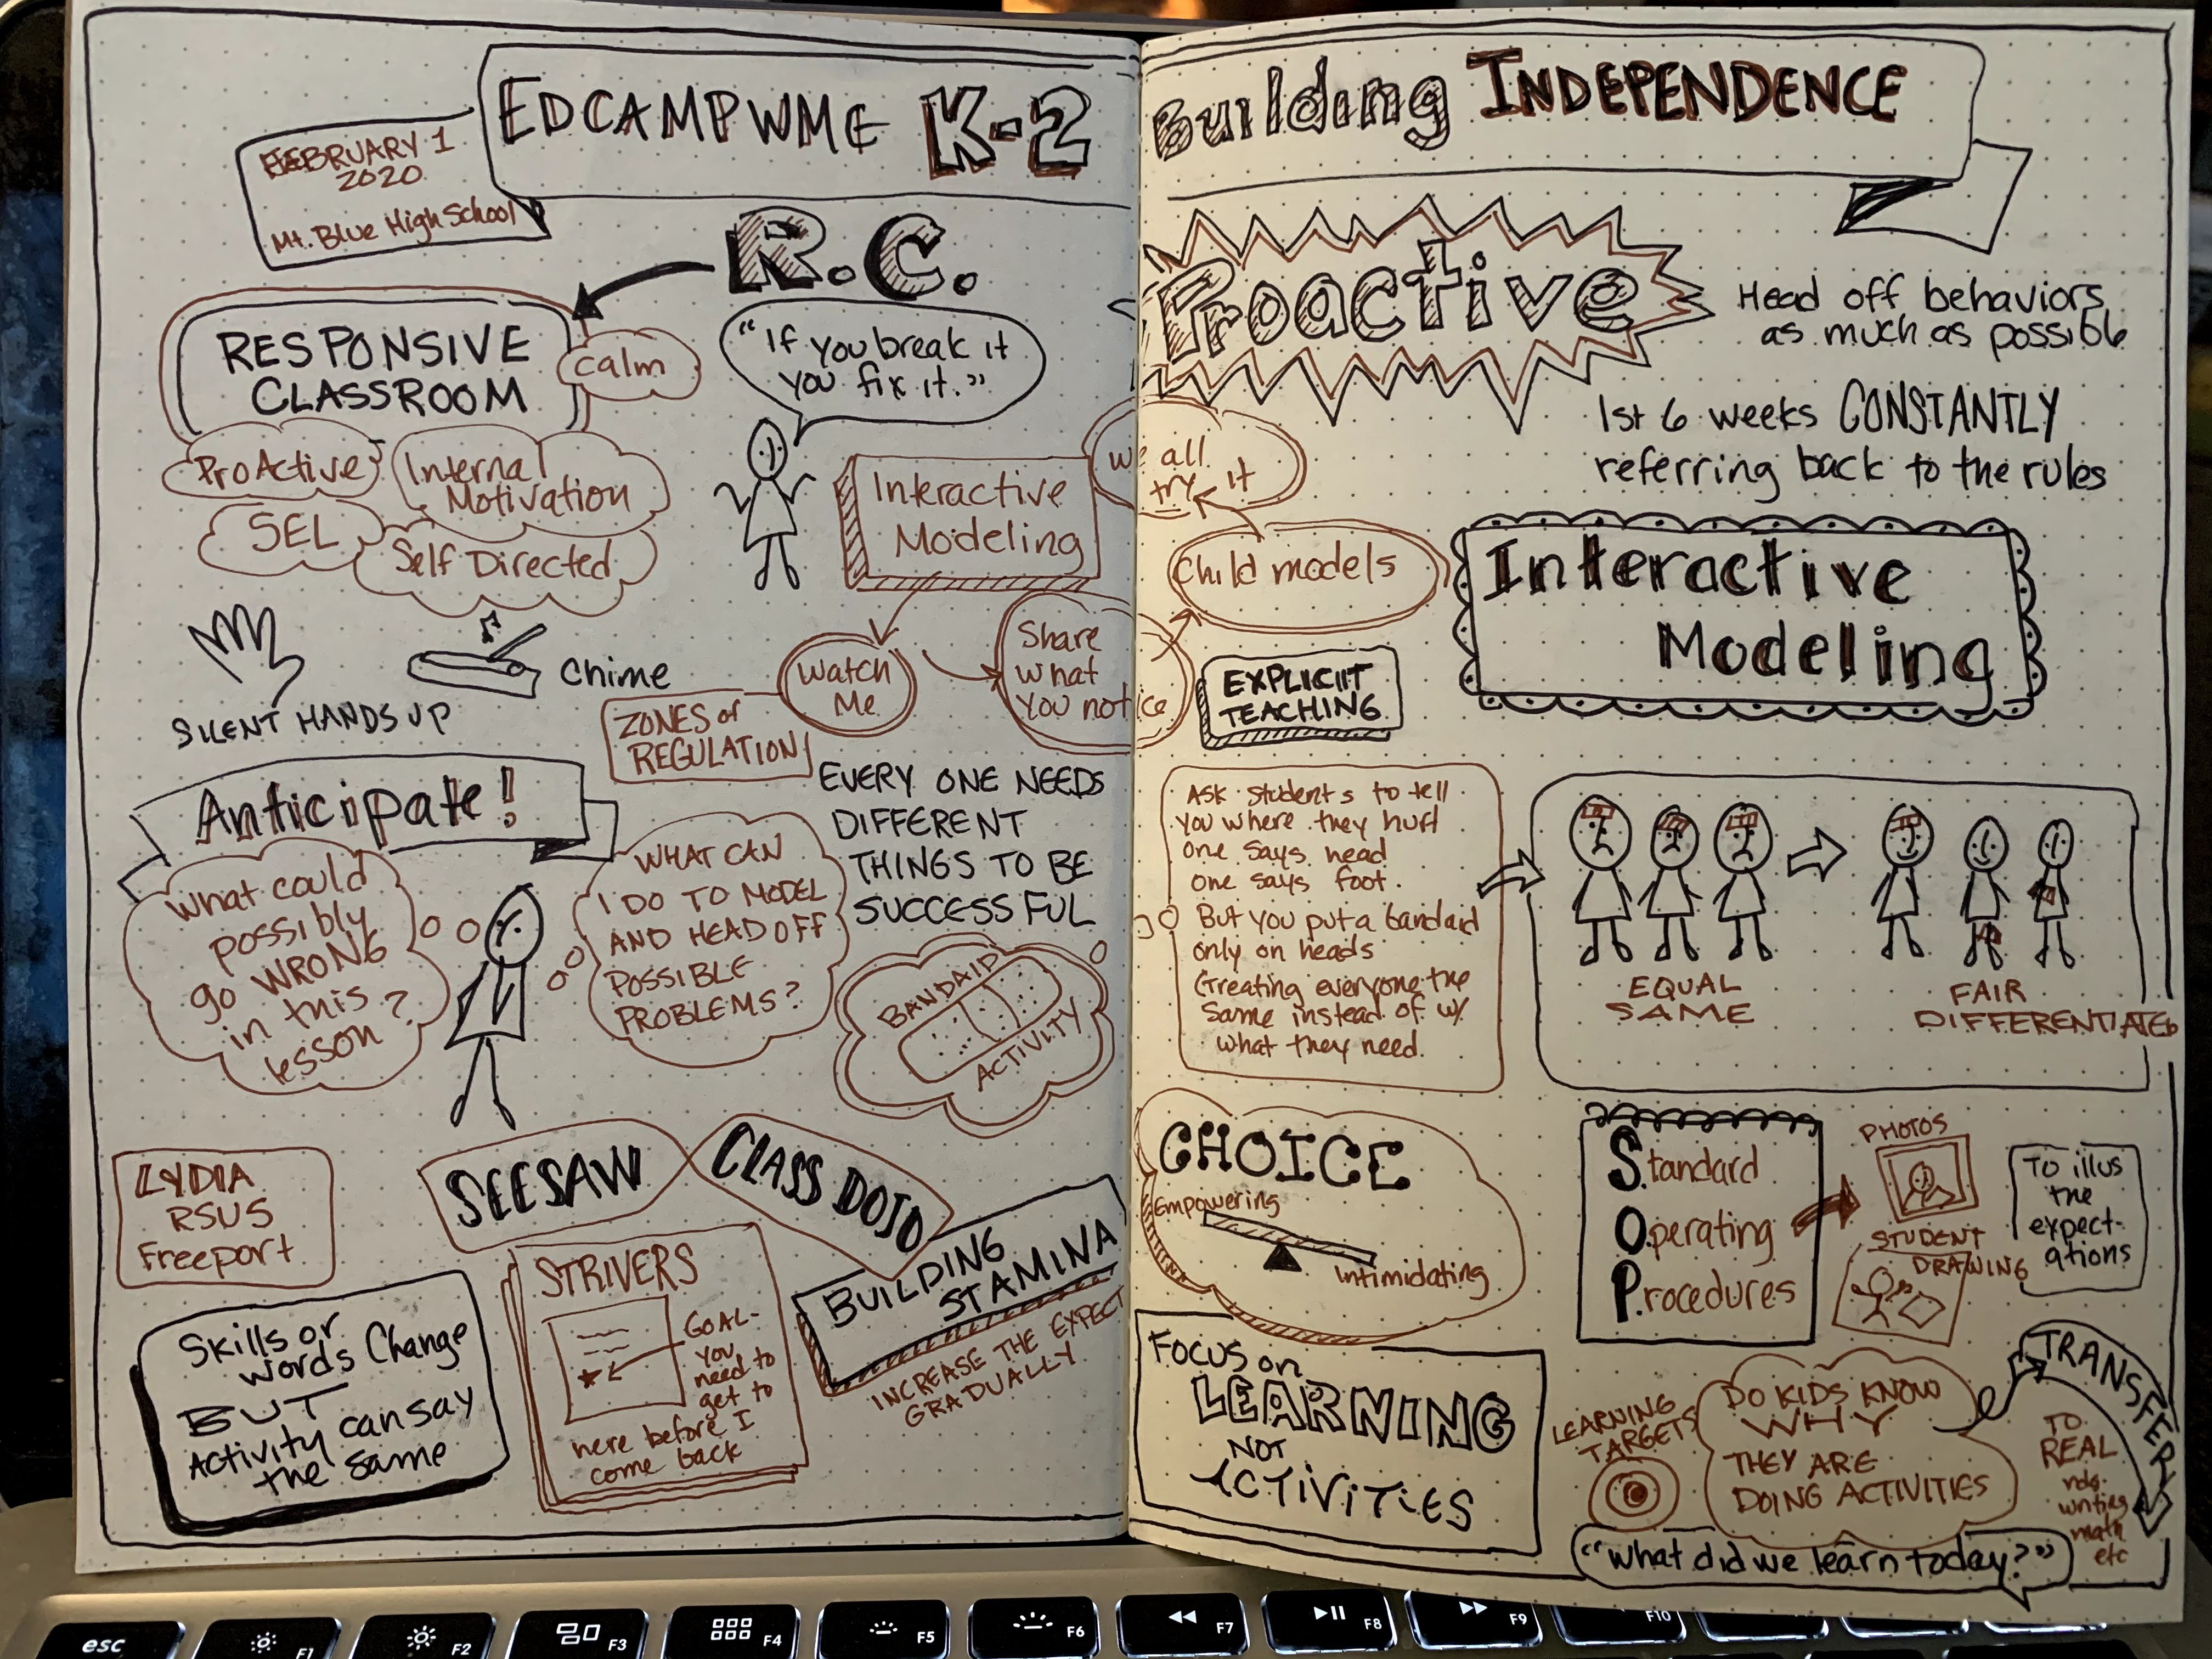 EDCAMPWME K-2 Building INDEPENDENCE
FEBRUARY 1
2020
Mt. Blue High School
R.C.
RESPONSIVE
CLASSROOM
calm
ProActive
Internal
Motivation
SEL
Self Directed
"If you break it
you fix it."
Interactive
Modeling
Watch
Me
Share
what
you notice
Child models
We all
try it
SILENT HANDS UP
Chime
ZONES of
REGULATION
Anticipate!
What could
possibly
go WRONG
in this
lesson?
WHAT CAN
I DO TO MODEL
AND HEAD OFF
POSSIBLE
PROBLEMS?
EVERY ONE NEEDS
DIFFERENT
THINGS TO BE
SUCCESSFUL
BANDAID
ACTIVITY
LYDIA
RSU5
Freeport
SEESAW
CLASS DOJO
Skills or
words Change
BUT
Activity can say
the same
STRIVERS
GOAL-
you
need to
get to
here before I
come back
BUILDING
STAMINA
INCREASE THE EXPECT
GRADUALLY
Proactive
Head off behaviors
as much as possible
1st 6 weeks CONSTANTLY
referring back to the rules
Interactive
Modeling
EXPLICIIT
TEACHING
Ask students to tell
you where they hurt
one says head
one says foot.
But you put a bandaid
only on heads
treating everyone the
same instead of w/
what they need.
EQUAL
SAME
FAIR
DIFFERENTIATED
CHOICE
Empowering
intimidating
Standard
Operating
Procedures
PHOTOS
STUDENT
DRAWING
To illus
the
expect-
ations
Focus on
LEARNING
NOT
ACTIVITIES
LEARNING
TARGETS
DO KIDS KNOW
WHY
THEY ARE
DOING ACTIVITIES
TRANSFER
TO
REAL
rdg.
writing
math
etc
"What did we learn today?"
esc
F1
F2
F3
F4
F5
F6
F7
F8
F9
F10